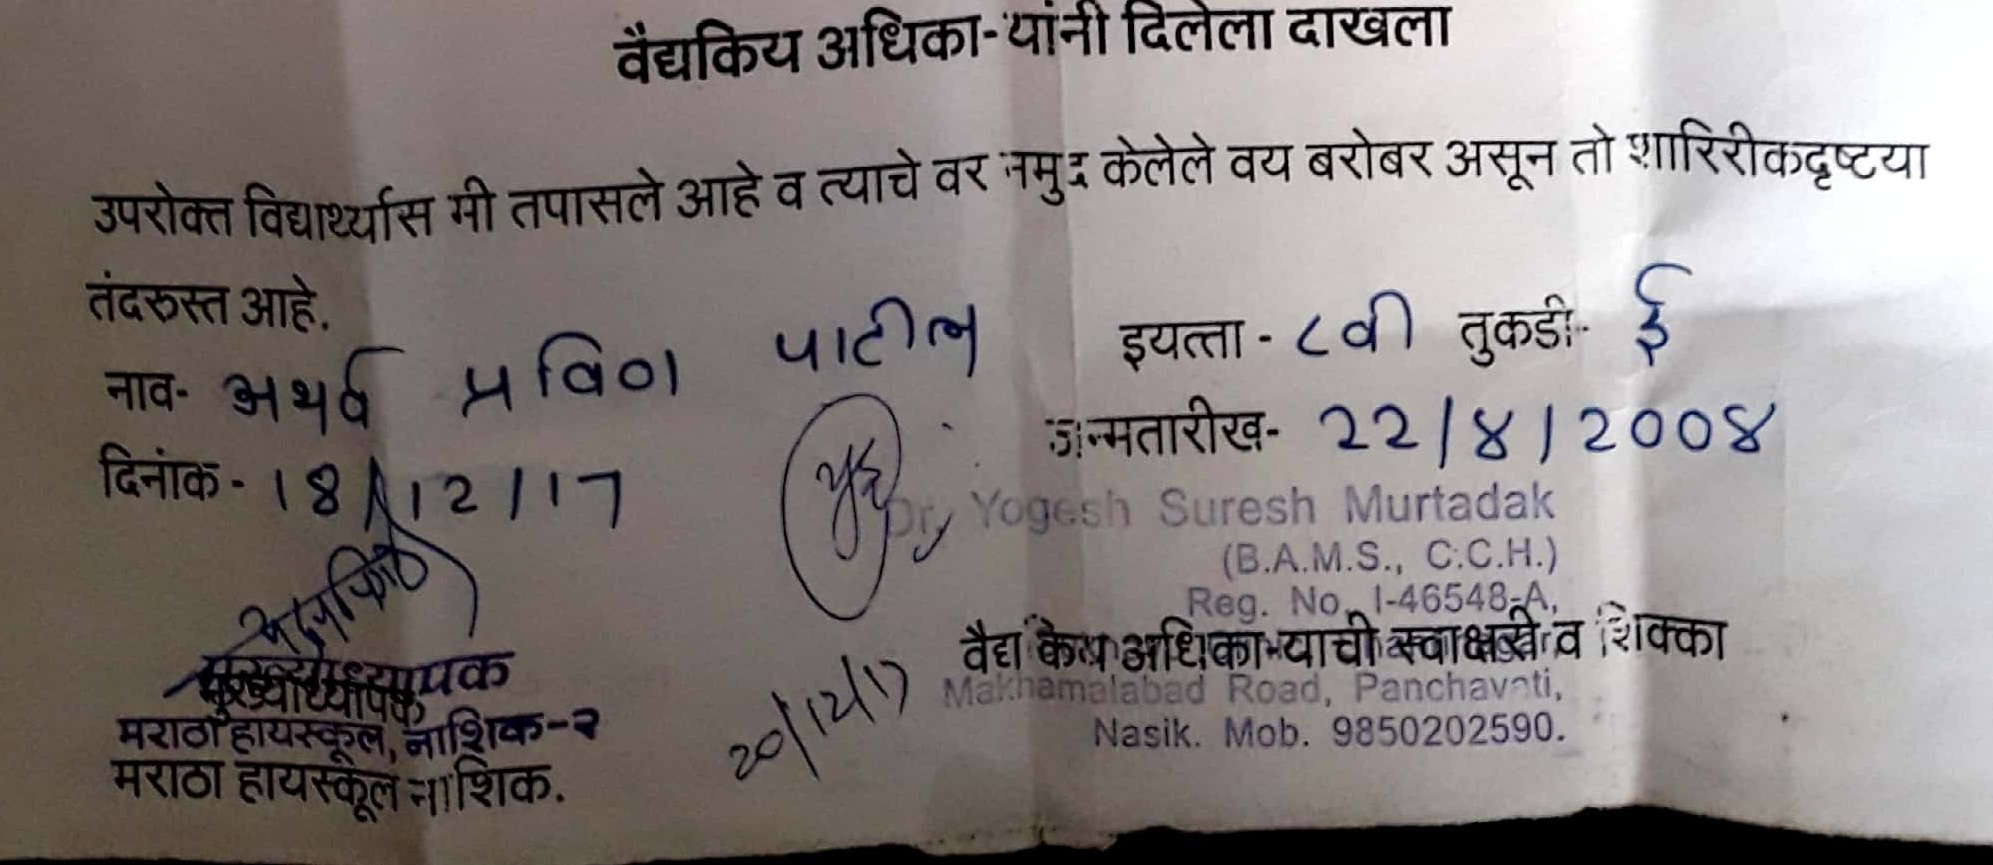 वैद्यकिय अधिका-यांनी दिलेला दाखला
उपरोक्त विद्यार्थ्यास मी तपासले आहे व त्याचे वर नमुद केलेले वय बरोबर असून तो शारिरीकदृष्टया
तंदरुस्त आहे.
नाव- अथर्व प्रविण पाटील इयत्ता - ८वी तुकडी- ई
दिनांक - 18/12/17 जन्मतारीख- 22/4/2004
Dr. Yogesh Suresh Murtadak
(B.A.M.S., C.C.H.)
Reg. No. I-46548-A,
वैद्यकिय अधिका-याची स्वाक्षरी व शिक्का
Makhamalabad Road, Panchavati,
Nasik. Mob. 9850202590.
20/12/17
मुख्याध्यापक
मुख्याध्यापक
मराठा हायस्कूल, नाशिक-२
मराठा हायस्कूल नाशिक.